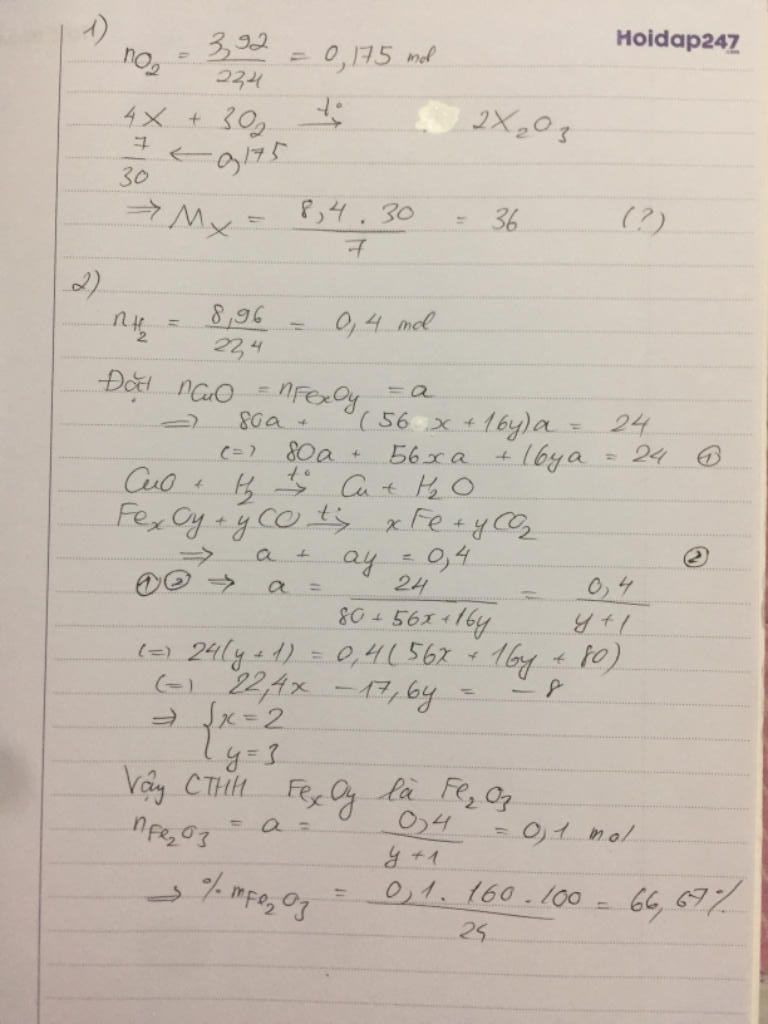 Hoidap247
.com
1)
nO₂ = 3,92/22,4 = 0,175 mol
4X + 3O₂ t°→ 2X₂O₃
7/30 ← 0,175
⇒ Mₓ = 8,4 . 30/7 = 36 (?)
2)
nH₂ = 8,96/22,4 = 0,4 mol
Đặt nCuO = nFeₓOy = a
⇒ 80a + (56 x + 16y)a = 24
(=) 80a + 56xa + 16ya = 24 ①
CuO + H₂ t°→ Cu + H₂O
FeₓOy + yCO t°→ xFe + yCO₂
⇒ a + ay = 0,4 ②
①② ⇒ a = 24/(80 + 56x + 16y) = 0,4/(y + 1)
(=) 24(y + 1) = 0,4(56x + 16y + 80)
(=) 22,4x - 17,6y = - 8
⇒ { x = 2
y = 3
Vậy CTHH FeₓOy là Fe₂O₃
nFe₂O₃ = a = 0,4/(y + 1) = 0,1 mol
⇒ % mFe₂O₃ = 0,1 . 160 . 100/24 = 66,67%